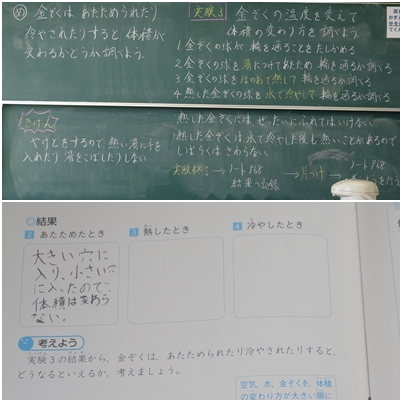 め 金ぞくは あたためられたり
冷やされたりすると 体積が
変わるかどうか調べよう。
実験3 金ぞくの温度を変えて
体積の変わり方を調べよう
1 金ぞくの球が 輪を通ることをたしかめる
2 金ぞくの球を湯につけてあため 輪を通るか調べる
3 金ぞくの球をほのおで熱して 輪を通るか調べる
4 熱した金ぞくの球を水で冷やして 輪を通るか調べる
きけん
やけどをするので 熱い湯に手を
入れたり 湯をこぼしたりしない
熱した金ぞくには ぜったいにふれてはいけない
熱した金ぞくは 水で冷やした後も 熱いことがあるので
しばらくは さわらない
実験終了 → ノートP68
結果を記録
→ 片づけ →
ノートP68
を行う
◎結果
2 あたためたとき
3 熱したとき
4 冷やしたとき
大きい穴に
入り、小さい穴
に入ったので、
体積は変わら
ない。
考えよう
実験3の結果から、金ぞくは、あたためられたり冷やされたりすると、
どうなるといえるか、考えましょう。
空気、水、金ぞくを、体積
の変わり方が大きい順に